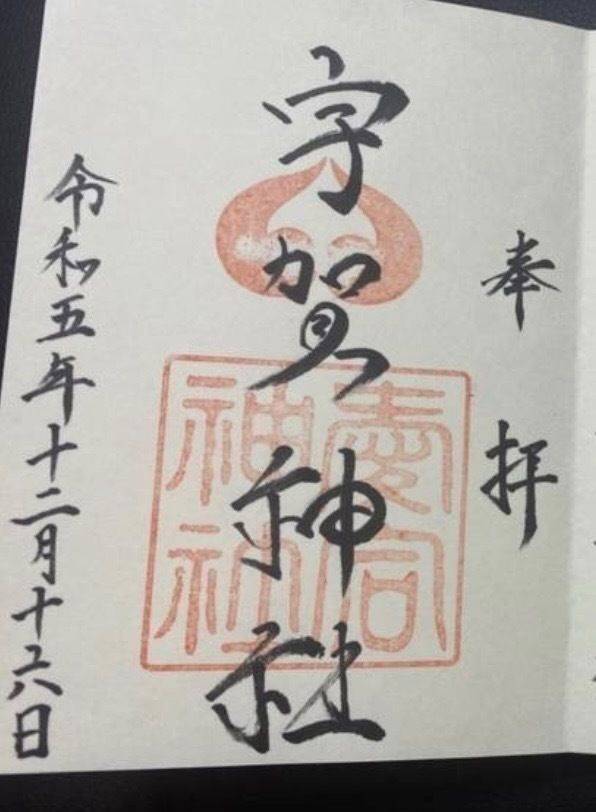 奉拝
宇賀神社
愛宕
神社
令和五年十二月十六日